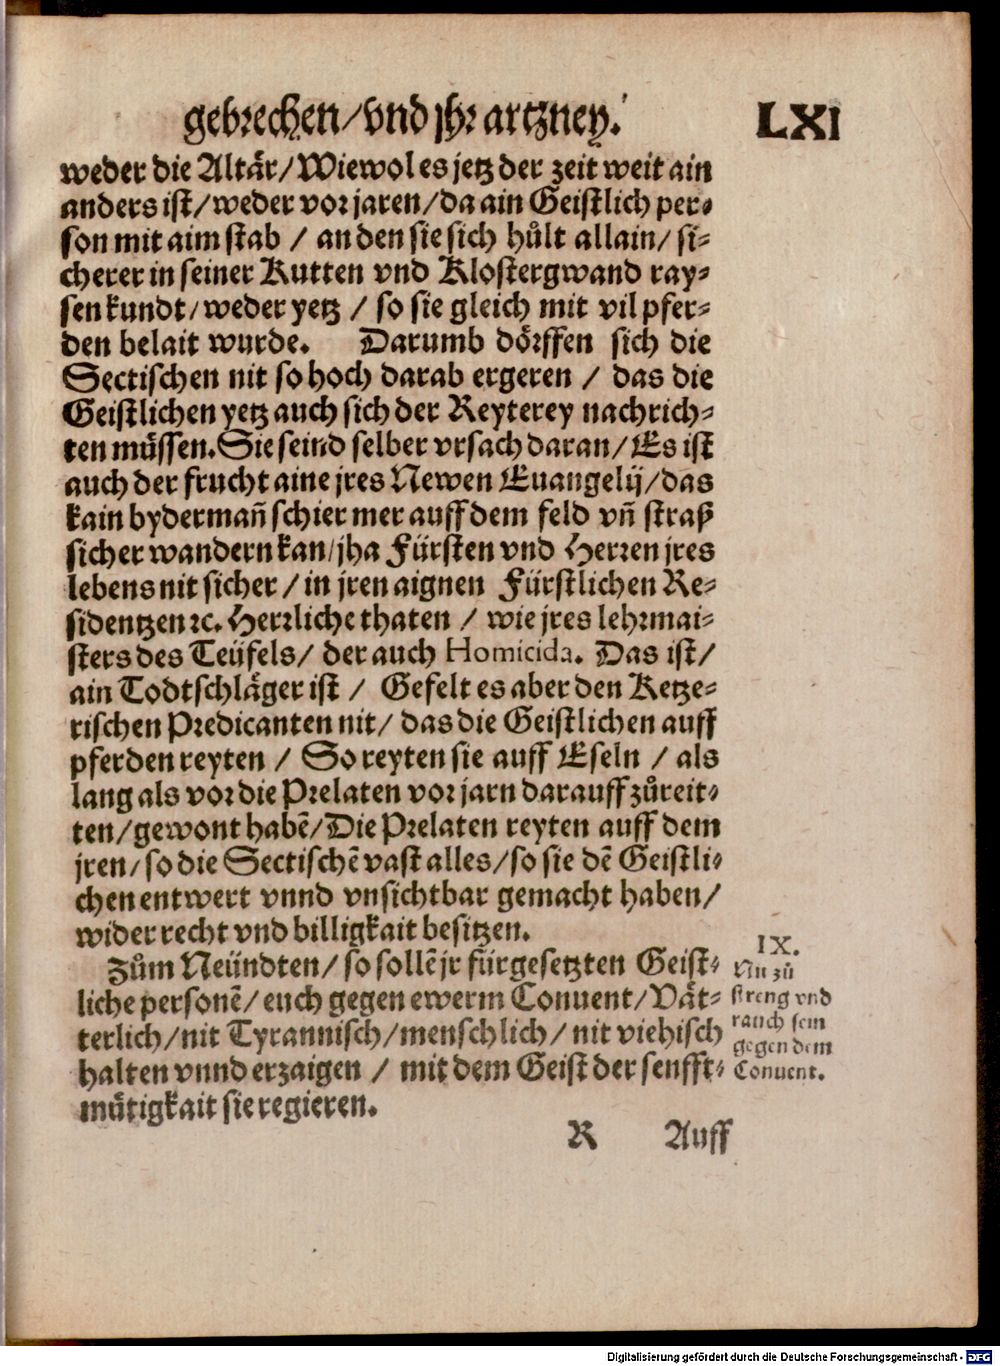 gebrechen/vnd jhr artzney.
LXI
weder die Altär/Wiewol es jetz der zeit weit ain
anders ist/weder vor jaren/da ain Geistlich per-
son mit aim stab / an den sie sich hült allain/ si-
cherer in seiner Kutten vnd Klostergwand ray-
sen kundt/weder yetz / so sie gleich mit vil pfer-
den belait wurde. Darumb dörffen sich die
Sectischen nit so hoch darab ergeren / das die
Geistlichen yetz auch sich der Reyterey nachrich-
ten müssen.Sie seind selber vrsach daran/Es ist
auch der frucht aine jres Newen Euangelij/das
kain bydermañ schier mer auff dem feld vñ straß
sicher wandern kan/jha Fürsten vnd Herren jres
lebens nit sicher / in jren aignen Fürstlichen Re-
sidentzen ꝛc. Herrliche thaten / wie jres lehrmai-
sters des Teüfels/ der auch Homicida. Das ist/
ain Todtschläger ist / Gefelt es aber den Ketze-
rischen Predicanten nit/ das die Geistlichen auff
pferden reyten / So reyten sie auff Eseln / als
lang als vor die Prelaten vor jarn darauff zůreit-
ten/gewont habē/Die Prelaten reyten auff dem
jren/so die Sectischē vast alles/so sie dē Geistli-
chen entwert vnnd vnsichtbar gemacht haben/
wider recht vnd billigkait besitzen.
Zům Neündten/ so sollē jr fürgesetzten Geist-
liche personē/ euch gegen ewerm Conuent/Vät-
terlich/nit Tyrannisch/menschlich/ nit viehisch
halten vnnd erzaigen / mit dem Geist der senfft-
mütigkait sie regieren.
IX.
Nit zů
streng vnd
rauch sein
gegen dem
Conuent.
R Auff
Digitalisierung gefördert durch die Deutsche Forschungsgemeinschaft - DFG